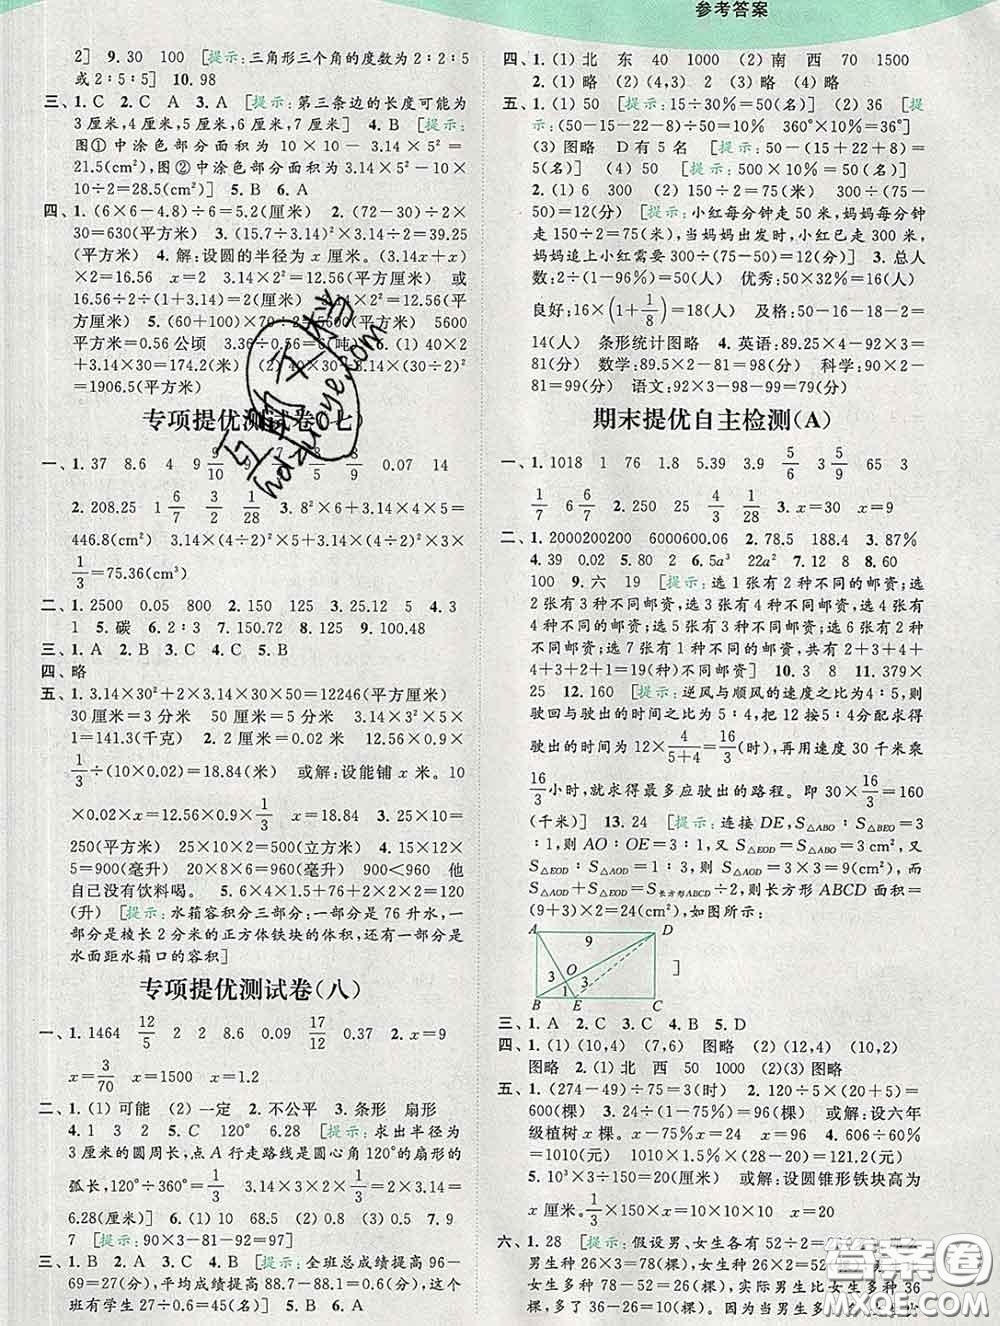 参考答案
2] 9.30 100 [提示:三角形三个角的度数为2∶2∶5
或2∶5∶5] 10.98
三、1.C 2.C A 3.A [提示:第三条边的长度可能为
3厘米,4厘米,5厘米,6厘米] 4.B [提示:
图①中涂色部分面积=10×10-3.14×5²=
21.5(cm²) 图②中涂色部分面积=3.14×5²-10×
10÷2=28.5(cm²)] 5.B 6.A
四、1.(6×6-4.8)÷6=5.2(厘米) 2.(72-30)÷2×
30=630(平方米) 3.(15.7÷3.14)²×3.14÷2=39.25
(平方米) 4.解:设圆的半径为x厘米。(3.14x+x)
×2=16.56 x=2 3.14×2²=12.56(平方厘米) 或
16.56÷2÷(1+3.14)=2(厘米) 3.14×2²=12.56(平
方厘米) 5.(60+100)×70÷2=5600(平方米) 5600
平方米=0.56公顷 3.36÷0.56=6(吨) 6.(1)40×2
+3.14×40=
=1906.5(平方米)
专项提优测试卷(七)
一、1.37 8.6 4 9 9/10 9 0.07 14
2.208.25 1 6/7 3/2 1/28 3.8²×6+3.14×4×5=
446.8(cm²) 3.14×(4÷2)²×5+3.14×(4÷2)²×3×
1/3=75.36(cm³)
二、1.2500 0.05 800 2.150 125 3.25.12 5 4.3
1 5.碳 6.2∶3 7.150.72 8.125 9.100.48
三、1.A 2.B 3.C 4.C 5.B
四、略
五、1.3.14×30²+2×3.14×30×50=12246(平方厘米)
30厘米=3分米 50厘米=5分米 3.14×3²×5×
1=141.3(千克) 2.2厘米=0.02米 12.56×0.9×
1/3÷(10×0.02)=18.84(米) 或解:设能铺x米。10
×0.02×x=12.56×0.9×1/3 x=18.84 3.25×10=
250(平方米) 25×10×2=500(立方米) 4.15×12×
5=900(毫升) 20×8×6=960(毫升) 900<960 他
自己没有饮料喝。 5.6×4×1.5+76+2×2×2=120
(升) [提示:水箱容积分三部分:一部分是76升水,一
部分是棱长2分米的正方体铁块的体积,还有一部分是
水面距水箱口的容积]
专项提优测试卷(八)
一、1.1464 12/5 2 2 8.6 0.09 17/12 0.37 2.x=9
x=3/70 x=1500 x=1.2
二、1.(1)可能 (2)一定 2.不公平 3.条形 扇形
4.1 3 2 5.C 120° 6.28 [提示:求出半径为
3厘米的圆周长,点A行走路线是圆心角120°的扇形的
弧长,120°÷360°=1/3 3.14×3×2×1/3=
6.28(厘米)] 6.(1)10 68.5 (2)0.8 (3)0.5 7.9
7 [提示:90×3-81-92=97]
三、1.C 2.B 3.A 4.B [提示:全班总成绩提高96-
69=27(分),平均成绩提高88.7-88.1=0.6(分),这个
班有学生27÷0.6=45(名)] 5.B 6.C
四、1.(1)北 东 40 1000 (2)南 西 70 1500
2.(1)略 (2)(4,3) 2 (3)略 (4)略
五、1.(1)50 [提示:15÷30%=50(名)] (2)36 [提
示:(50-15-22-8)÷50=10% 360°×10%=36°]
(3)图略 D有5名 [提示:50-(15+22+8)=
5(名)] (4)50 [提示:500×10%=50(名)]
2.(1)6 300 (2)150÷2=75(米) 300÷(75-
50)=12(分) [提示:小红每分钟走50米,妈妈每分钟走
150÷2=75(米)。当妈妈出发时,小红已走300米,
妈妈追上小红需要300÷(75-50)=12(分)] 3.总人
数:2÷(1-96%)=50(人) 优秀:50×32%=16(人)
良好:16×(1+1/8)=18(人) 及格:50-16-18-2=
14(人) 条形统计图略 4.英语:89.25×4-92×3=
81(分) 数学:89.5×2-81=98(分) 科学:90×2-
81=99(分) 语文:92×3-98-99=79(分)
期末提优自主检测(A)
一、1.1018 1 76 1.8 5.39 3.9 5/6 3/5 65 3
1/7 6 6/7 2.250 25 4/3 1/28 3.x=30 x=9
二、1.2000200200 6000600.06 2.78.5 188.4 3.87%
4.39 0.02 5.80 2 6.5a³ 22a² 7.12 8 8.60
100 9.六 19 [提示:选1张有2种不同的邮资;选
2张有3种不同邮资,选3张有4种不同邮资,选4张有
4种不同邮资;选5张有3种不同邮资,选6张有
2种不同邮资;选7张有1种不同邮资,共有2+3+4+
4+3+2+1=19(种)不同邮资] 10.3 8 11.379×
25 12.160 [提示:逆风与顺风的速度之比为4∶5,则
驶回与驶出的时间之比为5∶4,把12按5∶4分配求得
驶出的时间为12×4/(5+4)=16/3(时),再用速度30千米乘
16/3小时,就求得最多应驶出的路程。即30×16/3=160
(千米)] 13.24 [提示:连接DE,S△ABO∶S△BEO=3
∶1,所以AO∶OE=3∶1,又S△EOD=S△ABO=3cm²,又
S△EOD∶S△AOD=1∶3,则S△AOD=3×3=9(cm²),而
S△AOD+S△EOD=S长方形ABCD÷2,则长方形ABCD面积=
(9+3)×2=24(cm²),如图所示:
A D
9
O
3 3
1
B E C
]
三、1.A 2.C 3.C 4.B 5.D
四、1.(1)(10,4) (7,6) 图略 (2)(12,4) (10,2)
图略 2.(1)北 西 50 1000 (2)(3)图略
五、1.(274-49)÷75=3(时) 2.120÷5×(20+5)=
600(棵) 3.(1+23)÷(1-75%)=96(棵) 或解:设六年
级植树x棵。x-75%x=24 x=96 4.606÷60%
=1010(元) 1010×1.5%×2=30.3(元)
5.10³×3÷150=20(厘米) 或解:设圆锥形铁块高为
x厘米。1/3×150×x=10×10×10 x=20
六、1.28 [提示:假设男、女生各有52÷2=
男生种26×3=78(棵),女生种26×2=52(棵),男生比
女生多种78-52=26(棵),实际男生比女生多种36
棵,多了36-26=10(棵)。因为当男生多1人,女生少
答案圈
MXQE.COM